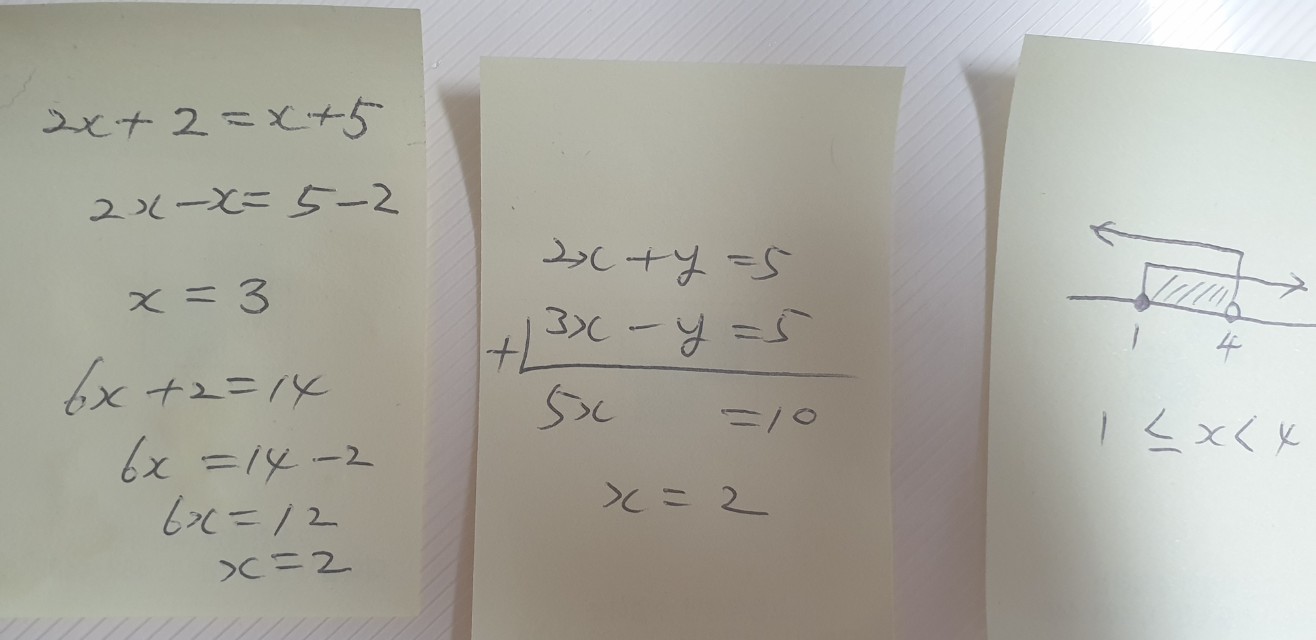 2x+2=x+5
2x-x=5-2
x=3
6x+2=14
6x=14-2
6x=12
x=2
2x+y=5
+ 3x-y=5
5x =10
x=2
1 4
1≤x<4